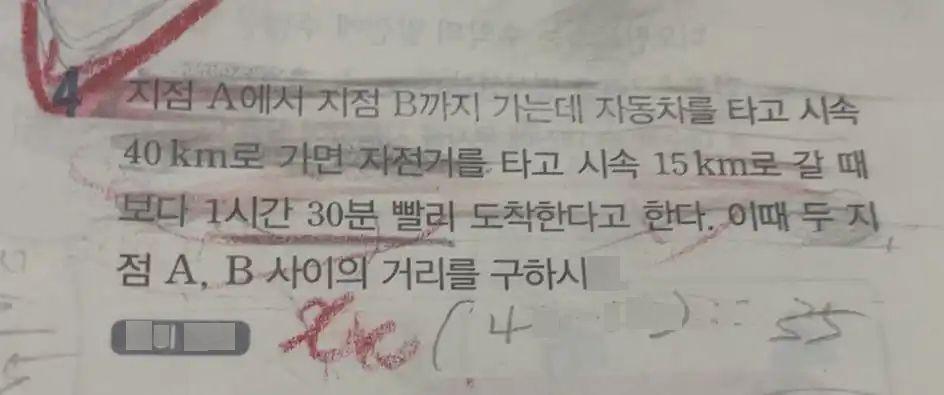 4 지점 A에서 지점 B까지 가는데 자동차를 타고 시속
40 km로 가면 자전거를 타고 시속 15 km로 갈 때
보다 1시간 30분 빨리 도착한다고 한다. 이때 두 지
점 A, B 사이의 거리를 구하시
(4 ) 55